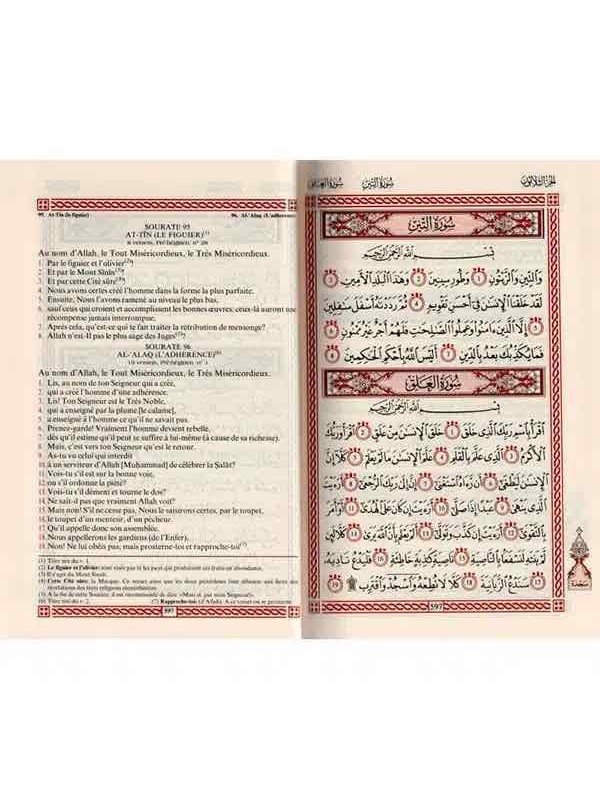 95. At-Tîn (le figuier) 96. Al-'Alaq (L'adhérence)
SOURATE 95
AT-TÎN (LE FIGUIER)(1)
8 versets, Pré-hégirien, n° 28
Au nom d'Allah, le Tout Miséricordieux, le Très Miséricordieux.
1. Par le figuier et l'olivier(2)!
2. Et par le Mont Sînîn(3)!
3. Et par cette Cité sûre(4)!
4. Nous avons certes créé l'homme dans la forme la plus parfaite.
5. Ensuite, Nous l'avons ramené au niveau le plus bas,
6. sauf ceux qui croient et accomplissent les bonnes œuvres: ceux-là auront une
récompense jamais interrompue.
7. Après cela, qu'est-ce qui te fait traiter la rétribution de mensonge?
8. Allah n'est-Il pas le plus sage des Juges(5)?
SOURATE 96
AL-'ALAQ (L'ADHÉRENCE)(6)
19 versets, Pré-hégirien, n° 1
Au nom d'Allah, le Tout Miséricordieux, le Très Miséricordieux.
1. Lis, au nom de ton Seigneur qui a créé,
2. qui a créé l'homme d'une adhérence.
3. Lis! Ton Seigneur est le Très Noble,
4. qui a enseigné par la plume [le calame],
5. a enseigné à l'homme ce qu'il ne savait pas.
6. Prenez-garde! Vraiment l'homme devient rebelle,
7. dès qu'il estime qu'il peut se suffire à lui-même (à cause de sa richesse).
8. Mais, c'est vers ton Seigneur qu'est le retour.
9. As-tu vu celui qui interdit
10. à un serviteur d'Allah [Muhammad] de célébrer la Salât?
11. Vois-tu s'il est sur la bonne voie,
12. ou s'il ordonne la piété?
13. Vois-tu s'il dément et tourne le dos?
14. Ne sait-il pas que vraiment Allah voit?
15. Mais non! S'il ne cesse pas, Nous le saisirons certes, par le toupet,
16. le toupet d'un menteur, d'un pécheur.
17. Qu'il appelle donc son assemblée.
18. Nous appellerons les gardiens (de l'Enfer).
19. Non! Ne lui obéis pas; mais prosterne-toi et rapproche-toi(7)
(1) Titre tiré du v. 1.
(2) Le figuier et l'olivier: sont visés par là les pays qui produisent ces fruits en abondance.
(3) Il s'agit du Mont Sinaï.
(4) Cette Cité sûre: la Mecque.
(5) A la fin de cette Sourate, il est recommandé de dire
(6) Titre tiré du v. 2. (7) Rapproche-toi: (d'Allah). A ce verset on se prosterne.
597
الجزء الثلاثون سورة التين سورة العلق
سُورَةُ التِّينِ
بِسْمِ اللَّهِ الرَّحْمَٰنِ الرَّحِيمِ
وَالتِّينِ وَالزَّيْتُونِ ١ وَطُورِ سِينِينَ ٢ وَهَٰذَا الْبَلَدِ الْأَمِينِ ٣
لَقَدْ خَلَقْنَا الْإِنسَٰنَ فِي أَحْسَنِ تَقْوِيمٍ ٤ ثُمَّ رَدَدْنَٰهُ أَسْفَلَ سَٰفِلِينَ
٥ إِلَّا الَّذِينَ ءَامَنُوا وَعَمِلُوا الصَّٰلِحَٰتِ فَلَهُمْ أَجْرٌ غَيْرُ مَمْنُونٍ ٦
فَمَا يُكَذِّبُكَ بَعْدُ بِالدِّينِ ٧ أَلَيْسَ اللَّهُ بِأَحْكَمِ الْحَٰكِمِينَ ٨
سُورَةُ الْعَلَقِ
بِسْمِ اللَّهِ الرَّحْمَٰنِ الرَّحِيمِ
اقْرَأْ بِاسْمِ رَبِّكَ الَّذِي خَلَقَ ١ خَلَقَ الْإِنسَٰنَ مِنْ عَلَقٍ ٢ اقْرَأْ وَرَبُّكَ
الْأَكْرَمُ ٣ الَّذِي عَلَّمَ بِالْقَلَمِ ٤ عَلَّمَ الْإِنسَٰنَ مَا لَمْ يَعْلَمْ ٥ كَلَّا إِنَّ
الْإِنسَٰنَ لَيَطْغَىٰ ٦ أَن رَّءَاهُ اسْتَغْنَىٰ ٧ إِنَّ إِلَىٰ رَبِّكَ الرُّجْعَىٰ ٨ أَرَءَيْتَ
الَّذِي يَنْهَىٰ ٩ عَبْدًا إِذَا صَلَّىٰ ١٠ أَرَءَيْتَ إِن كَانَ عَلَى الْهُدَىٰ ١١ أَوْ أَمَرَ
بِالتَّقْوَىٰ ١٢ أَرَءَيْتَ إِن كَذَّبَ وَتَوَلَّىٰ ١٣ أَلَمْ يَعْلَم بِأَنَّ اللَّهَ يَرَىٰ ١٤ كَلَّا لَئِن
لَّمْ يَنتَهِ لَنَسْفَعًا بِالنَّاصِيَةِ ١٥ نَاصِيَةٍ كَٰذِبَةٍ خَاطِئَةٍ ١٦ فَلْيَدْعُ نَادِيَهُ
١٧ سَنَدْعُ الزَّبَانِيَةَ ١٨ كَلَّا لَا تُطِعْهُ وَاسْجُدْ وَاقْتَرِب ۩ ١٩
سجدة
597